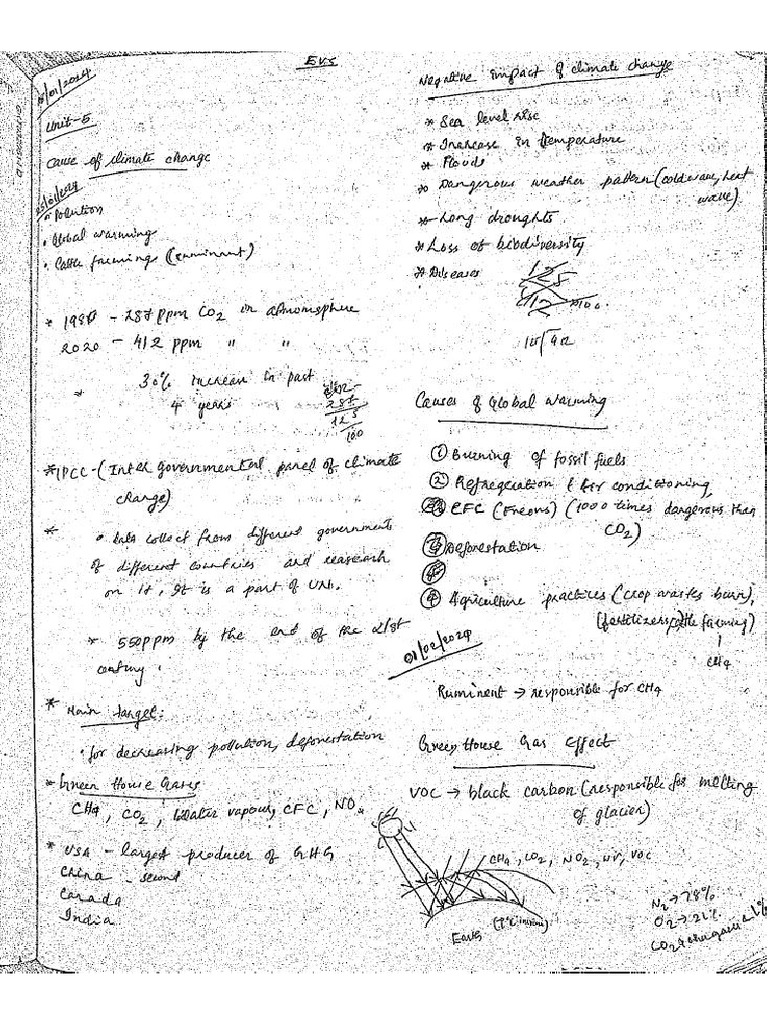 EVS
Unit-5
Cause of climate change
Pollution
• Global warming
• Cattle farmings (ruminant)
* 1980 - 287 ppm CO2 in atmomsphere
2020 - 412 ppm " "
* 30% increase in past
4 years
125
100
* IPCC - (Inter governmental panel of climate
change)
* • collect from different governments
of different countries and reaserch
on it, It is a part of UN.
* 550ppm by the end of the 21st
century.
* Main target:
• for decreasing pollution, deforestation
* Green House Gases
CH4, CO2, Water vapour, CFC, NO2
* USA - largest producer of GHG
China - second
Canada
India
Negative impact of climate change
* Sea level rise
* Increase in temperature
* Floods
* Dangerous weather pattern (coldwave, heat
wave)
* Long droughts
* Loss of biodiversity
* Diseases
125
412 × 100
Causes of Global warming
① Burning of fossil fuels
② Refregeration & Air conditioning,
CFC (Freons) (1000 times dangerous than
CO2)
③ Deforestation
④ Agriculture practices (crop wastes burn),
(fertilizers) (cattle farming)
↓
CH4
01/02/2024
Ruminent → responsible for CH4
Green House Gas Effect
VOC → black carbon (responsible for melting
of glacier)
CH4, CO2, NO2, WV, VOC
Earth
N2 → 78%
O2 → 21%
CO2